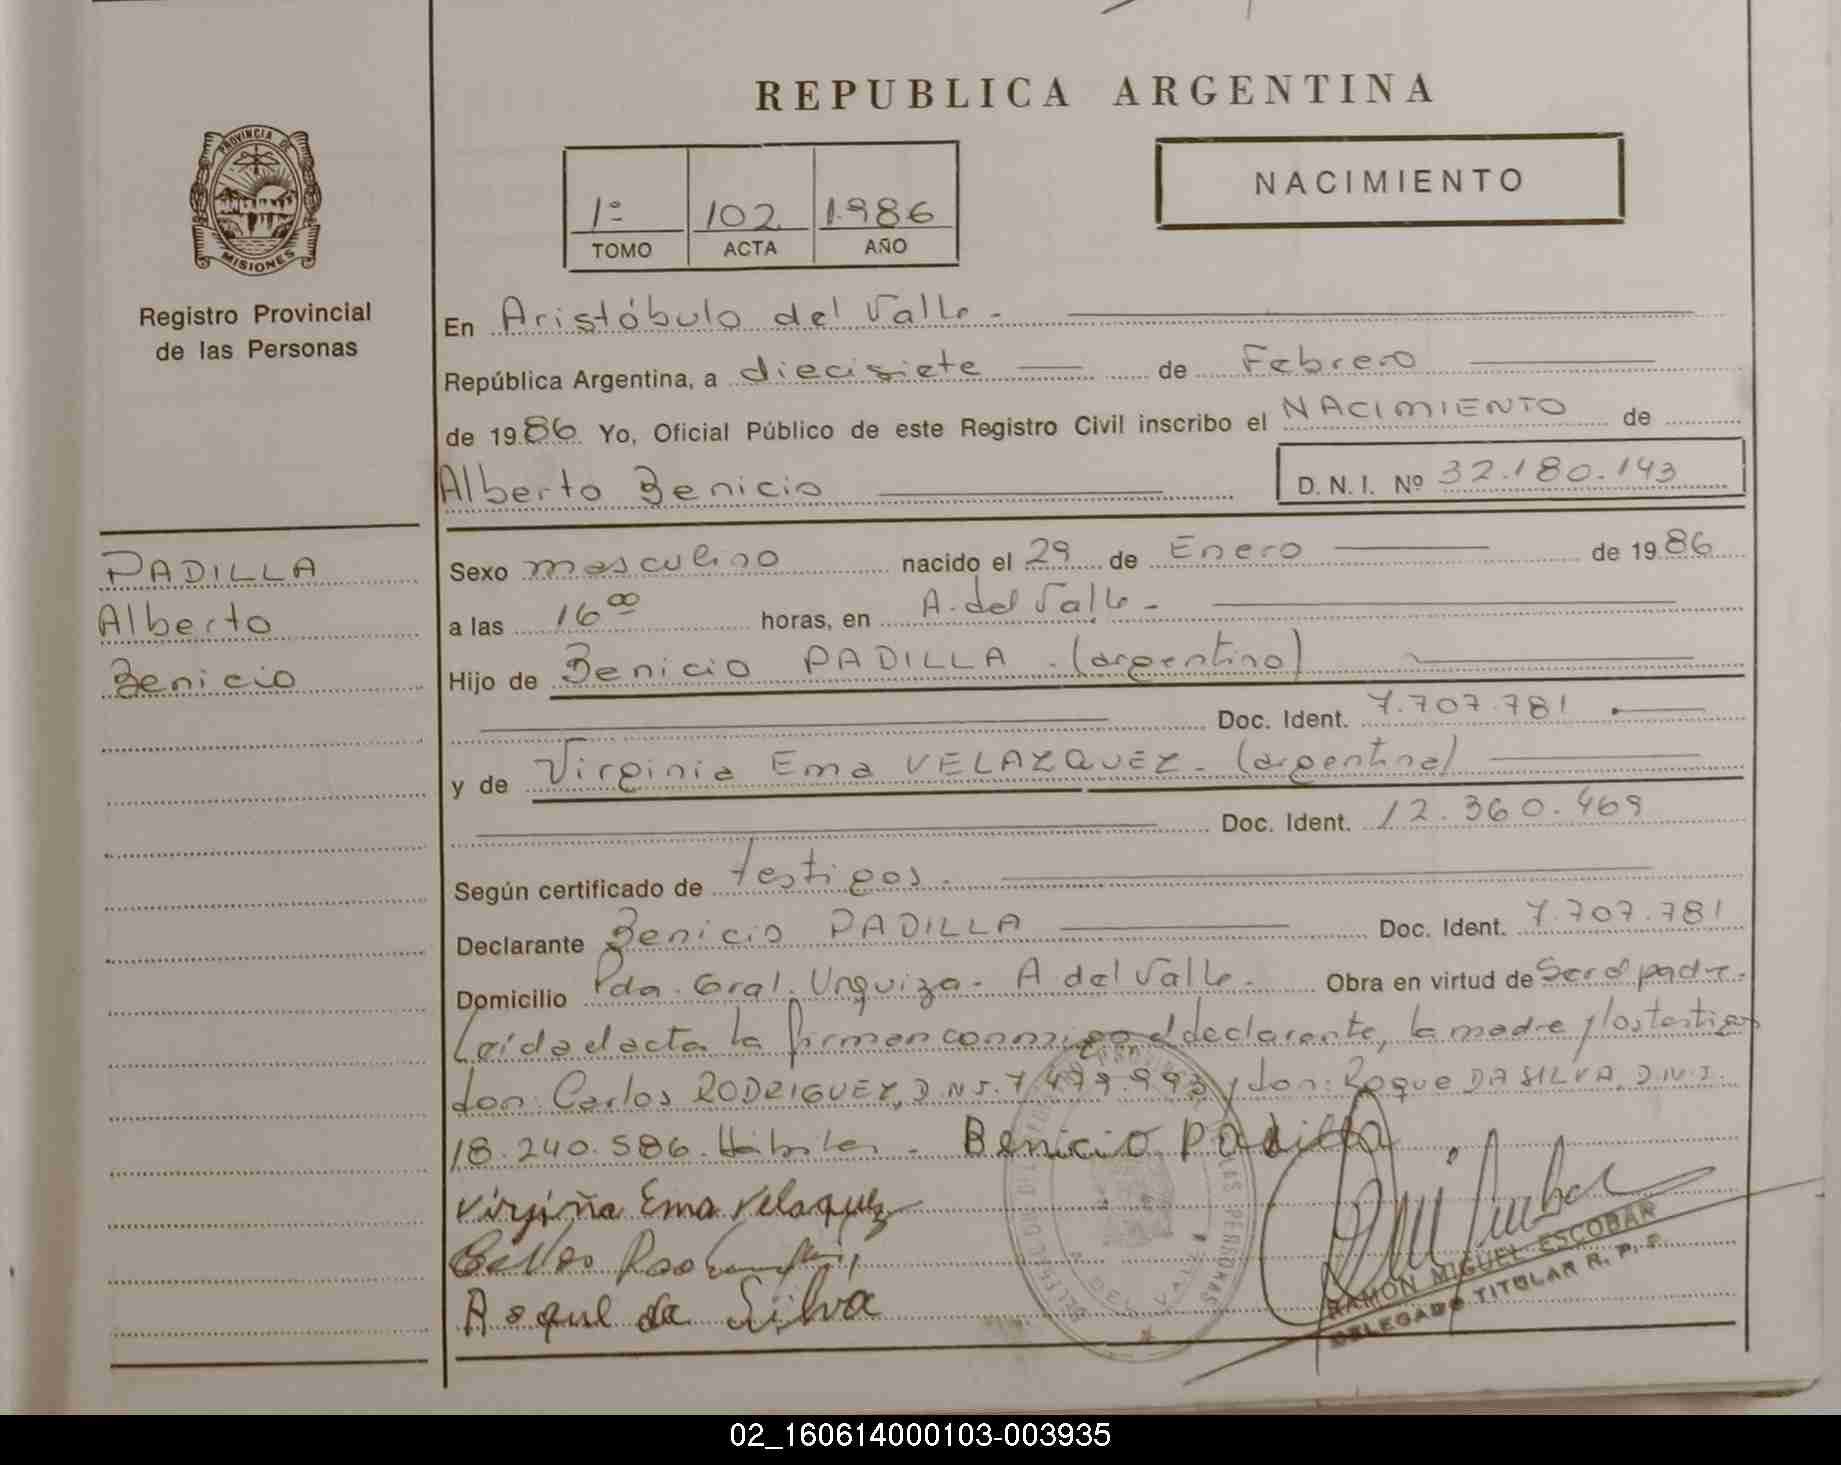 REPUBLICA ARGENTINA
PROVINCIA DE
MISIONES
Registro Provincial
de las Personas
NACIMIENTO
1º 102 1.986
TOMO ACTA AÑO
En Aristóbulo del Valle.-
República Argentina, a diecisiete de Febrero
de 1986 Yo, Oficial Público de este Registro Civil inscribo el NACIMIENTO de
Alberto Benicio D. N. I. Nº 32.180.143
PADILLA
Alberto
Benicio
Sexo masculino nacido el 29 de Enero de 1986
a las 16 00 horas, en A. del Valle.-
Hijo de Benicio PADILLA.(argentino)
Doc. Ident. 7.707.781
y de Virginia Ema VELAZQUEZ.(argentina)
Doc. Ident. 12.360.469
Según certificado de testigos.
Declarante Benicio PADILLA Doc. Ident. 7.707.781
Domicilio Pda. Gral. Urquiza. A. del Valle. Obra en virtud de Ser el padre.
Leída el acta la firman conmigo el declarante, la madre y los testigos
don: Carlos RODRIGUEZ, D.N.I. 7.479.993 y don: Roque DA SILVA, D.N.I.
18.240.586. Hábiles.- Benicio Padilla
Virgiña Ema Velaquez
Roque da Silva
RAMON MIGUEL ESCOBAR
DELEGADO TITULAR R. P. P.
02_160614000103-003935